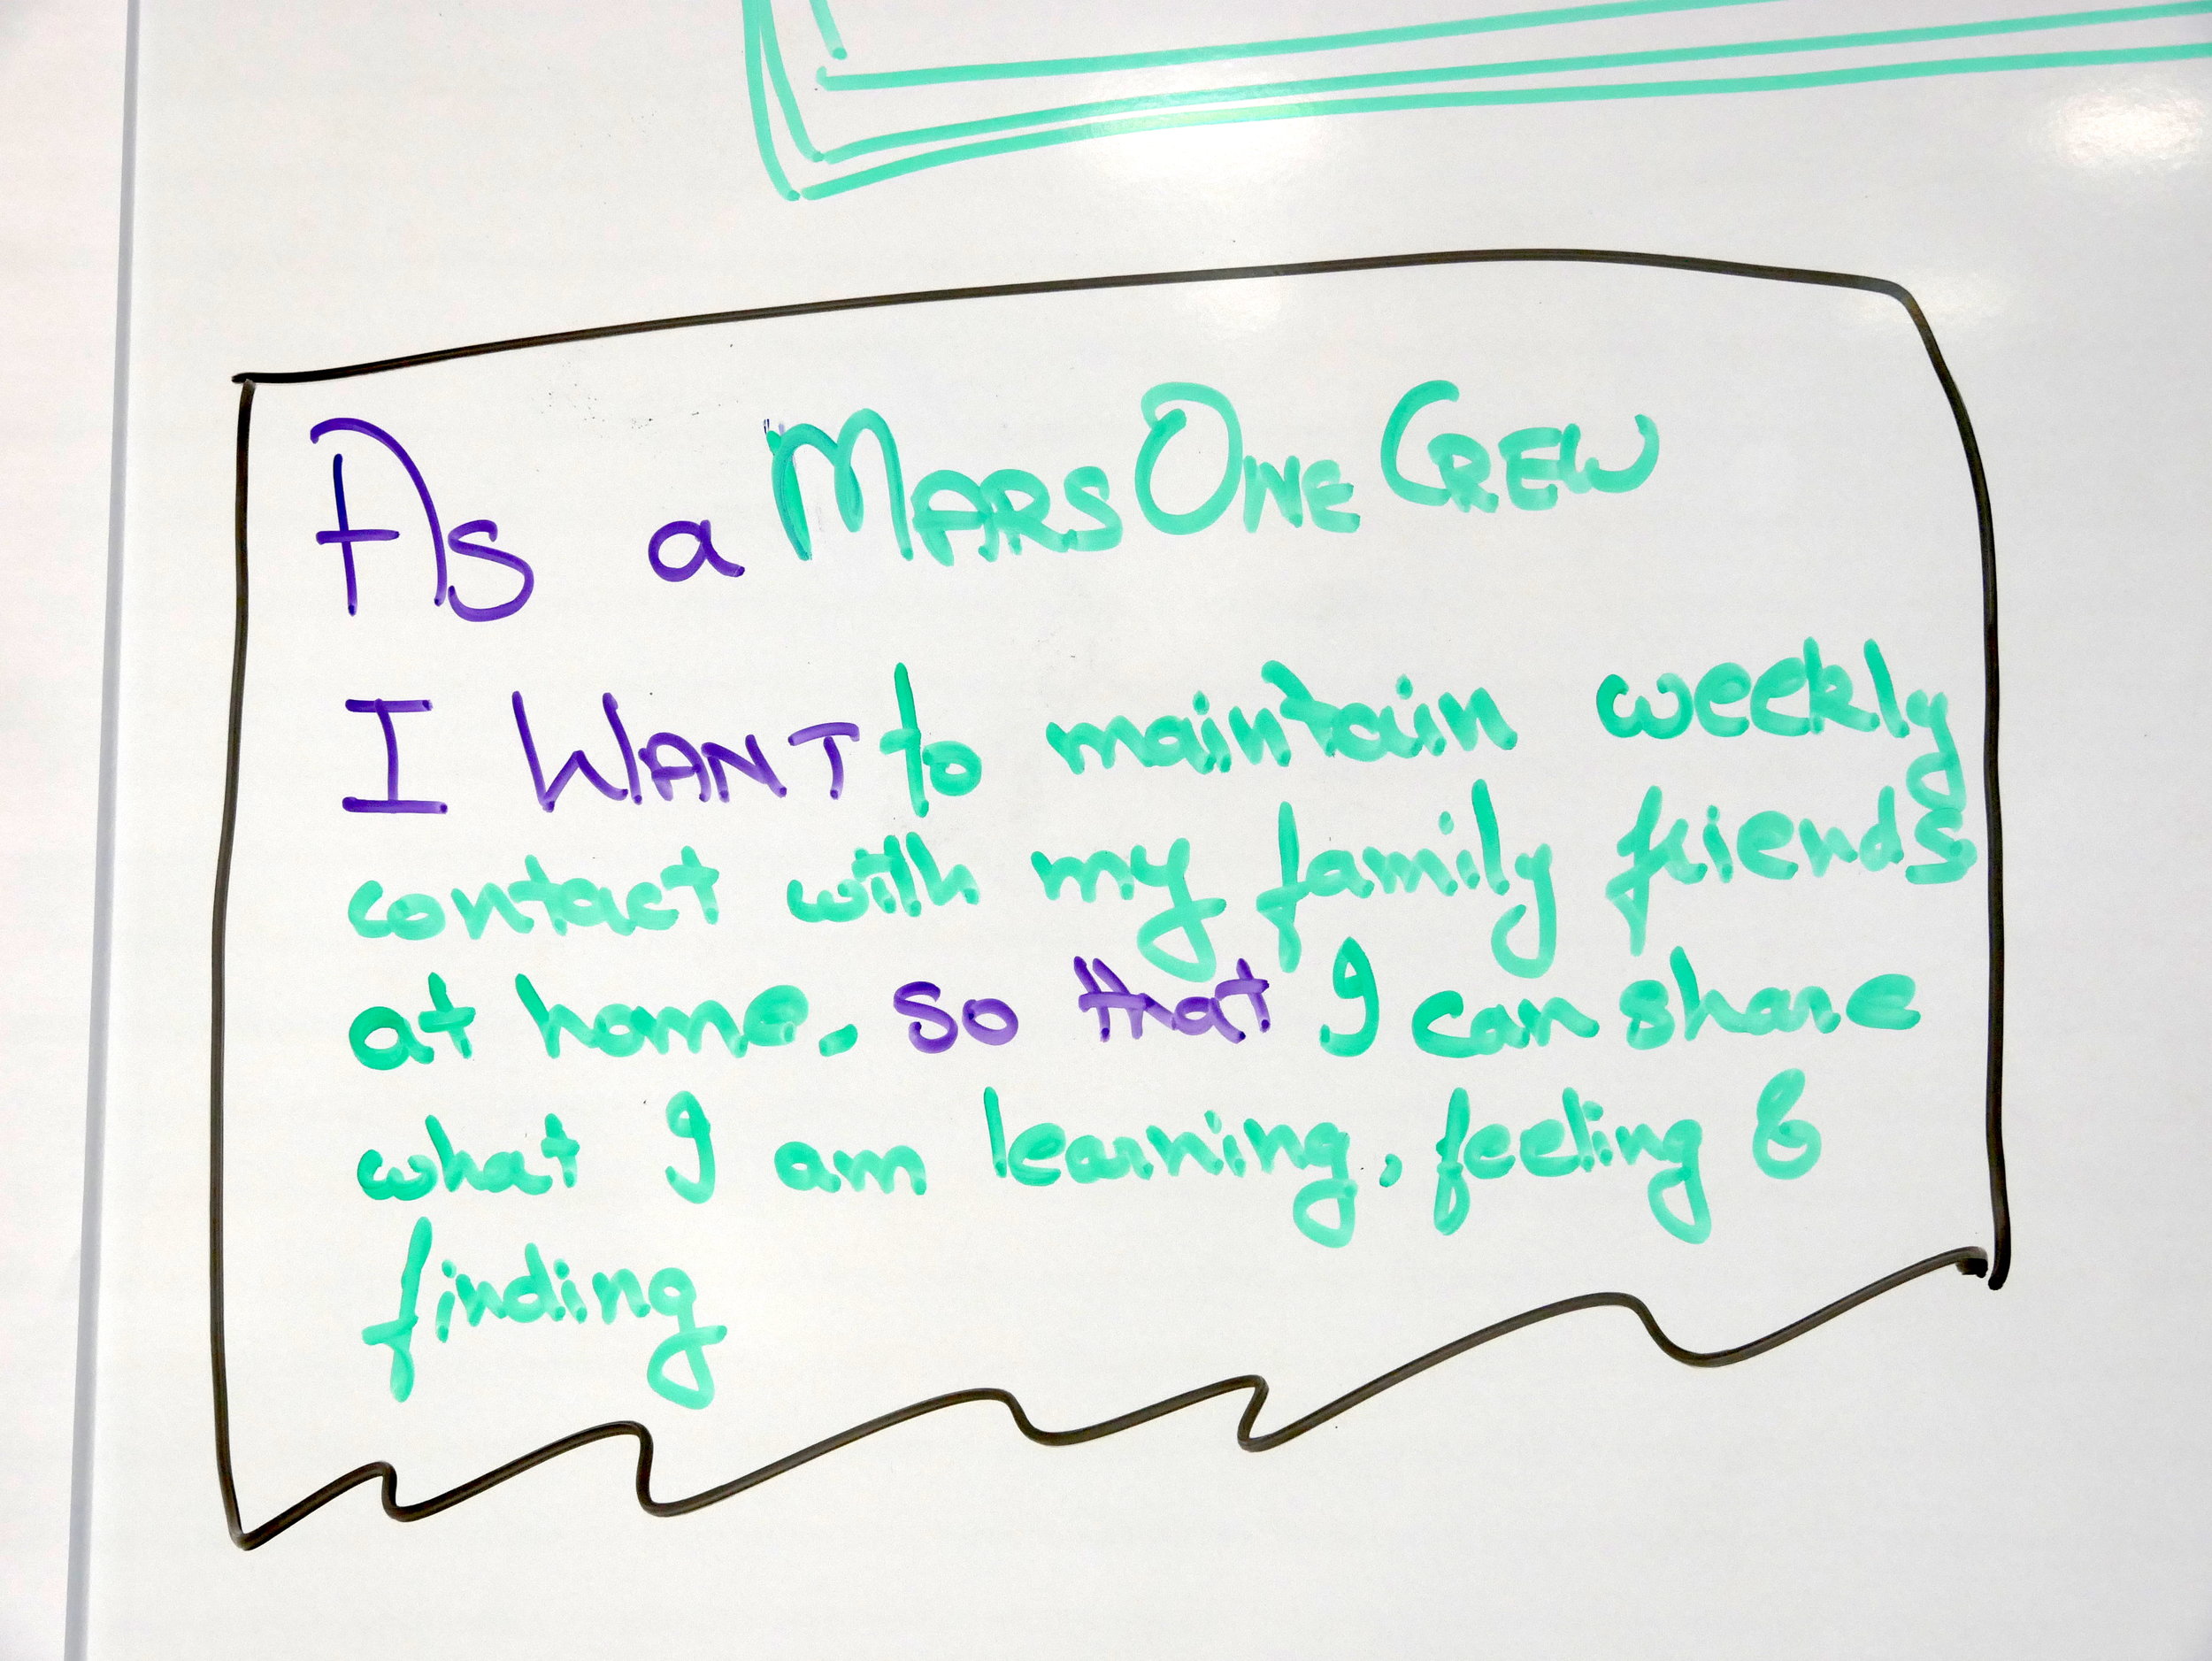 As a Mars One Crew
I WANT to maintain weekly
contact with my family friends
at home. so that I can share
what I am learning, feeling &
finding